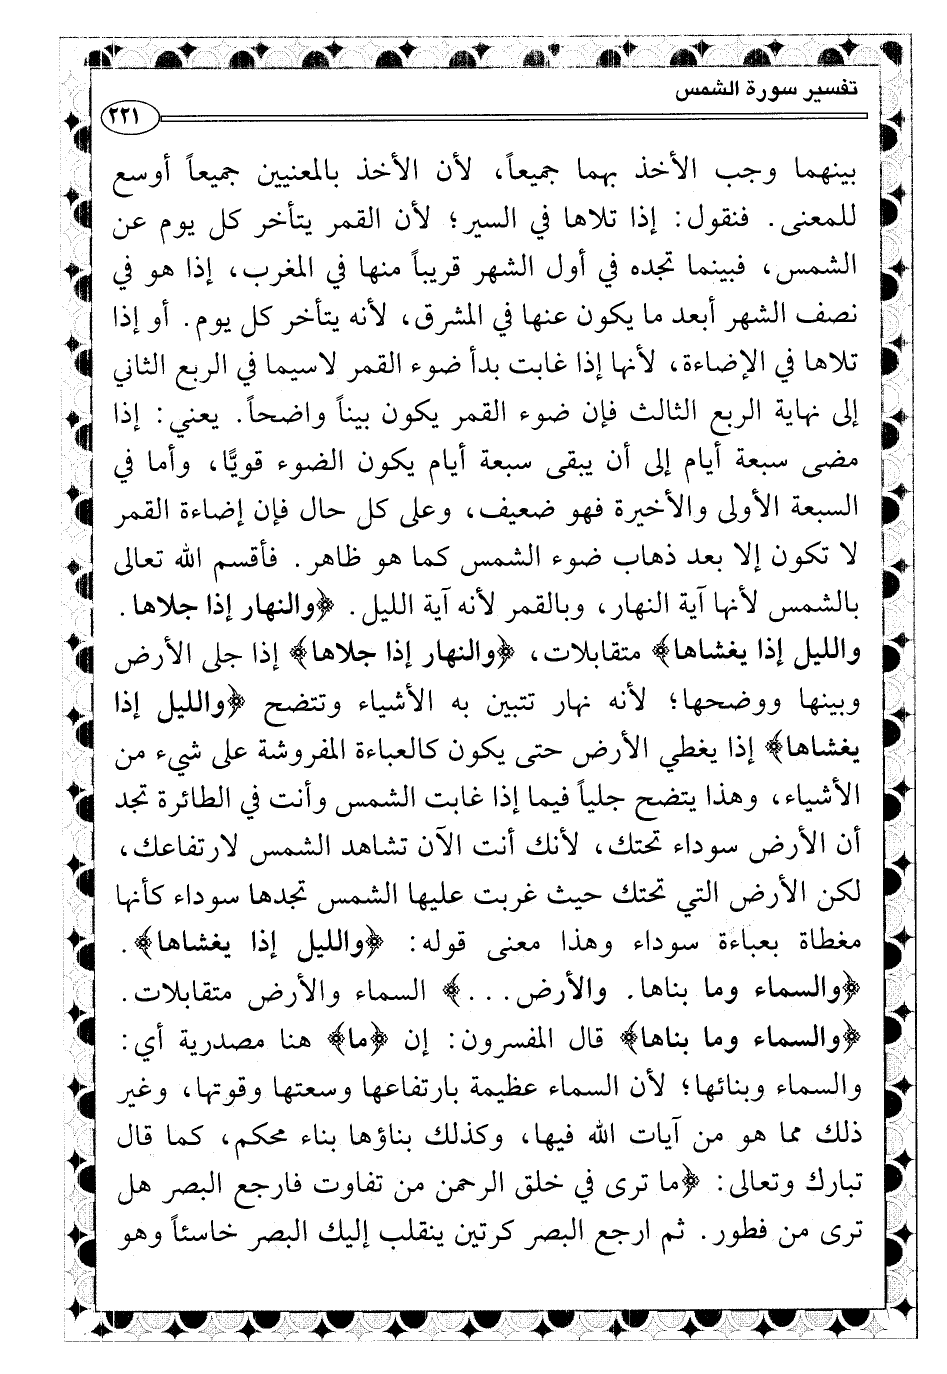 تفسير سورة الشمس
٢٢١
بينهما وجب الأخذ بهما جميعاً، لأن الأخذ بالمعنيين جميعاً أوسع
للمعنى. فنقول: إذا تلاها في السير؛ لأن القمر يتأخر كل يوم عن
الشمس، فبينما تجده في أول الشهر قريباً منها في المغرب، إذا هو في
نصف الشهر أبعد ما يكون عنها في المشرق، لأنه يتأخر كل يوم. أو إذا
تلاها في الإضاءة، لأنها إذا غابت بدأ ضوء القمر لاسيما في الربع الثاني
إلى نهاية الربع الثالث فإن ضوء القمر يكون بيناً واضحاً. يعني: إذا
مضى سبعة أيام إلى أن يبقى سبعة أيام يكون الضوء قويًّا، وأما في
السبعة الأولى والأخيرة فهو ضعيف، وعلى كل حال فإن إضاءة القمر
لا تكون إلا بعد ذهاب ضوء الشمس كما هو ظاهر. فأقسم الله تعالى
بالشمس لأنها آية النهار، وبالقمر لأنه آية الليل. ﴿والنهار إذا جلاها.
والليل إذا يغشاها﴾ متقابلات، ﴿والنهار إذا جلاها﴾ إذا جلى الأرض
وبينها ووضحها؛ لأنه نهار تتبين به الأشياء وتتضح ﴿والليل إذا
يغشاها﴾ إذا يغطي الأرض حتى يكون كالعباءة المفروشة على شيء من
الأشياء، وهذا يتضح جلياً فيما إذا غابت الشمس وأنت في الطائرة تجد
أن الأرض سوداء تحتك، لأنك أنت الآن تشاهد الشمس لارتفاعك،
لكن الأرض التي تحتك حيث غربت عليها الشمس تجدها سوداء كأنها
مغطاة بعباءة سوداء وهذا معنى قوله: ﴿والليل إذا يغشاها﴾.
﴿والسماء وما بناها. والأرض...﴾ السماء والأرض متقابلات.
﴿والسماء وما بناها﴾ قال المفسرون: إن ﴿ما﴾ هنا مصدرية أي:
والسماء وبنائها؛ لأن السماء عظيمة بارتفاعها وسعتها وقوتها، وغير
ذلك مما هو من آيات الله فيها، وكذلك بناؤها بناء محكم، كما قال
تبارك وتعالى: ﴿ما ترى في خلق الرحمن من تفاوت فارجع البصر هل
ترى من فطور. ثم ارجع البصر كرتين ينقلب إليك البصر خاسئاً وهو